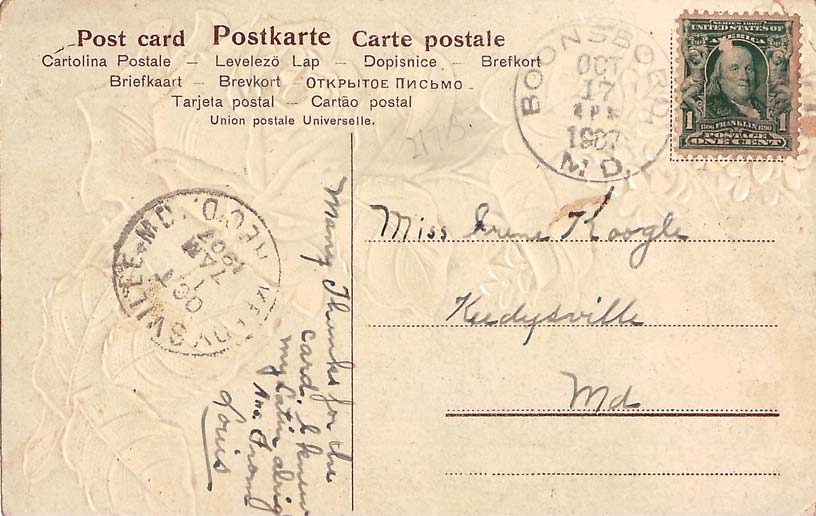 Post card Postkarte Carte postale
Cartolina Postale – Levelező Lap – Dopisnice – Brefkort
Briefkaart – Brevkort – Открытое Письмо –
Tarjeta postal – Cartão postal
Union postale Universelle.
BOONSBORO,
OCT
17
1907
MD.
SERIES 1902
UNITED STATES OF
AMERICA
1706 FRANKLIN 1790
1 POSTAGE
ONE CENT
Miss Irene Koogle
Keedysville
Md
MD.
REC'D.
OCT
7 AM
1907
Many Thanks for the
card. I knew
my Latin
From
Louis